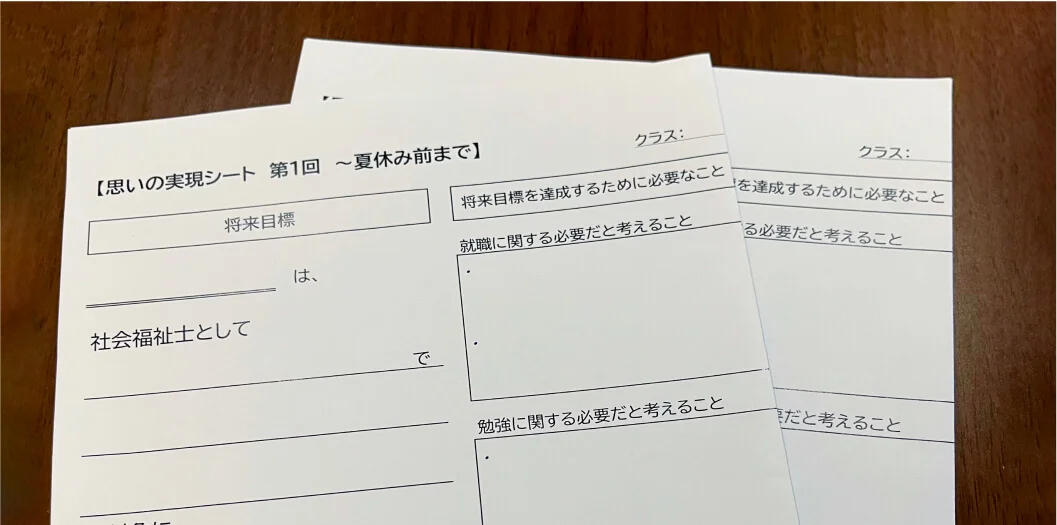 【思いの実現シート 第1回 ～夏休み前まで】
クラス：
将来目標
は、
社会福祉士として
で
将来目標を達成するために必要なこと
就職に関する必要だと考えること
・
・
勉強に関する必要だと考えること
・
クラス：
を達成するために必要なこと
る必要だと考えること
だと考えること